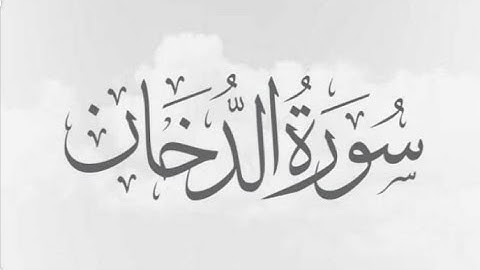 سُورَةُ الدُّخَان